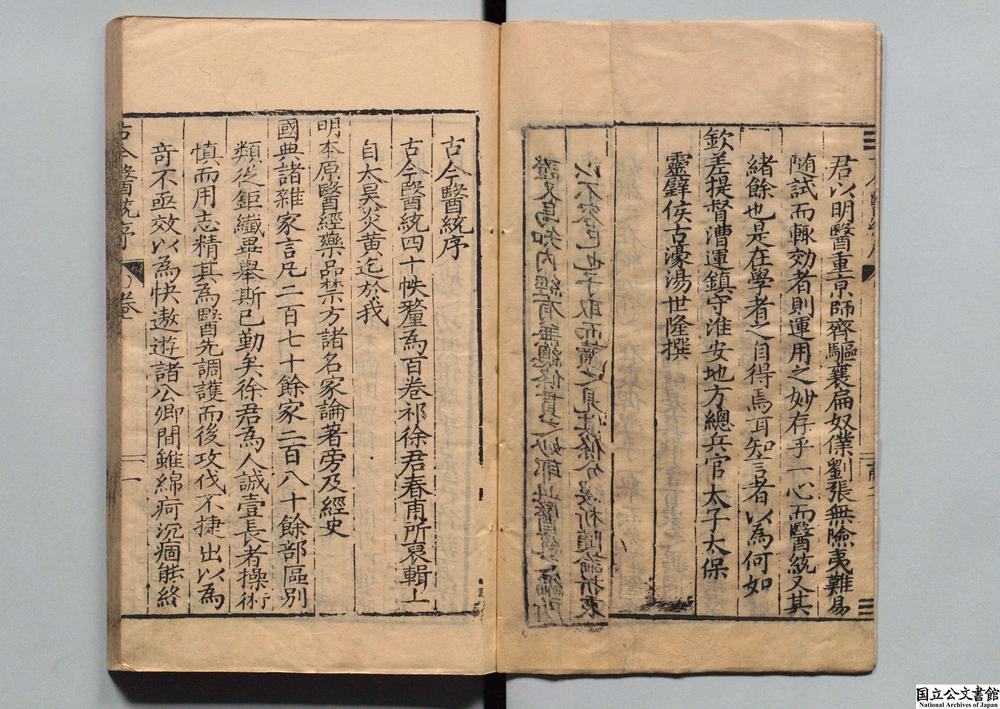 君以明醫重京師齊驅襄扁奴僕劉張無險夷難易
随試而輒効者則運用之妙存乎一心而醫統又其
緒餘也是在學者之自得焉耳知言者以為何如
欽差提督漕運鎮守淮安地方總兵官太子太保
靈璧侯古濠湯世隆撰
古今醫統序
古今醫統四十帙釐為百卷祁徐君春甫所裒輯上
自太昊炎黃迄於我
明本原醫經藥品禁方諸名家論著旁及經史
國典諸雜家言凡二百七十餘家二百八十餘部區別
類從鉅纖畢舉斯已勤矣徐君為人誠壹長者操術
慎而用志精其為醫先調護而後攻伐不捷出以為
奇不亟效以為快遨遊諸公卿間雖綿疴沉痼能終
古今醫統序
一
国立公文書館
National Archives of Japan